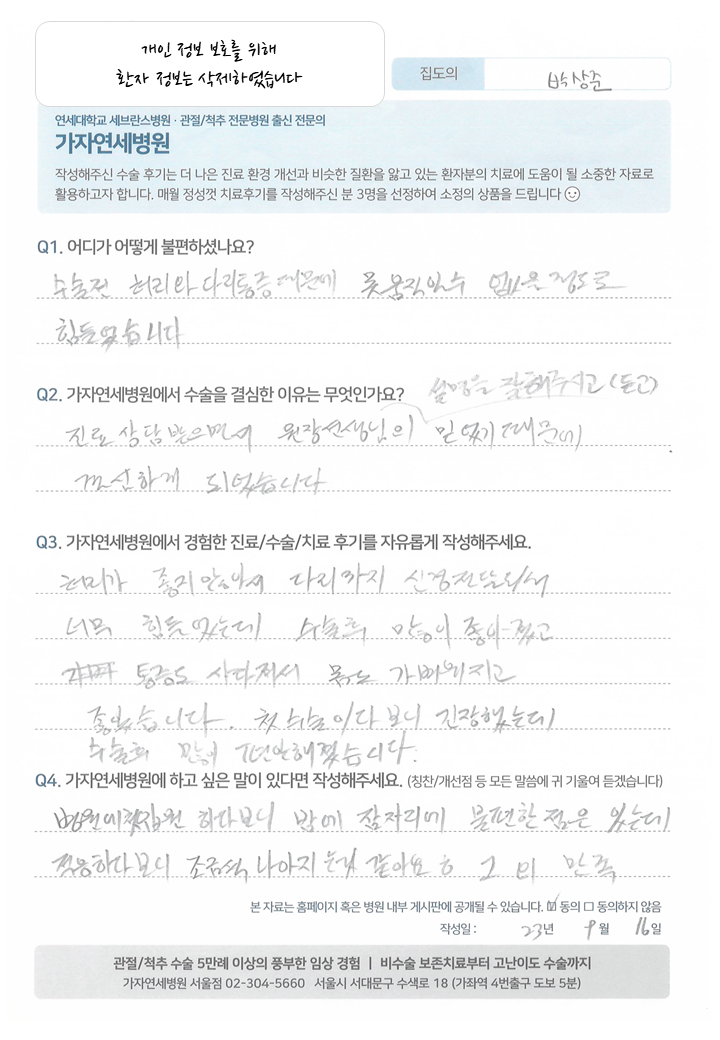 개인 정보 보호를 위해
환자 정보는 삭제하였습니다
집도의
박상준
연세대학교 세브란스병원 · 관절/척추 전문병원 출신 전문의
가자연세병원
작성해주신 수술 후기는 더 나은 진료 환경 개선과 비슷한 질환을 앓고 있는 환자분의 치료에 도움이 될 소중한 자료로
활용하고자 합니다. 매월 정성껏 치료후기를 작성해주신 분 3명을 선정하여 소정의 상품을 드립니다
Q1. 어디가 어떻게 불편하셨나요?
수술전 허리와 다리통증 때문에 못 움직일수 없을정도로
힘들었습니다
Q2. 가자연세병원에서 수술을 결심한 이유는 무엇인가요?
설명을 잘해주시고 (듣고)
진료 상담받으면서 원장선생님의 믿었기 때문에
하게 되었습니다
Q3. 가자연세병원에서 경험한 진료/수술/치료 후기를 자유롭게 작성해주세요.
허리가 좋지않아서 다리까지 신경전달되서
너무 힘들었는데 수술후 많이 좋아졌고
통증도 사라져서 몸도 가벼워지고
좋았습니다. 첫 수술이다 보니 긴장했는데
수술후 많이 편안해졌습니다.
Q4. 가자연세병원에 하고 싶은 말이 있다면 작성해주세요. (칭찬/개선점 등 모든 말씀에 귀 기울여 듣겠습니다)
병원에 첫입원 하다보니 밤에 잠자리에 불편한 점은 있는데
적응하다보니 조금씩 나아지는것 같아요 그 외 만족
본 자료는 홈페이지 혹은 병원 내부 게시판에 공개될 수 있습니다. ☑ 동의 □ 동의하지 않음
작성일 : 23년 9월 16일
관절/척추 수술 5만례 이상의 풍부한 임상 경험 | 비수술 보존치료부터 고난이도 수술까지
가자연세병원 서울점 02-304-5660 서울시 서대문구 수색로 18 (가좌역 4번출구 도보 5분)